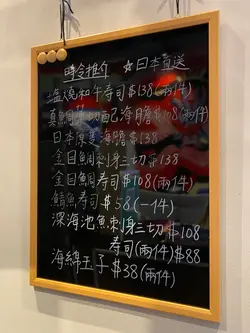 時令推介 ☆日本直送
塩燒和牛壽司$138(兩件)
真鯛 三切配海膽 $108(兩件)
日本原隻海膽$138
金目鯛刺身三切$138
金目鯛壽司$108(兩件)
鯖魚壽司$58(一件)
深海池魚刺身三切$108
壽司(兩件)$88
海綿玉子$38(兩件)